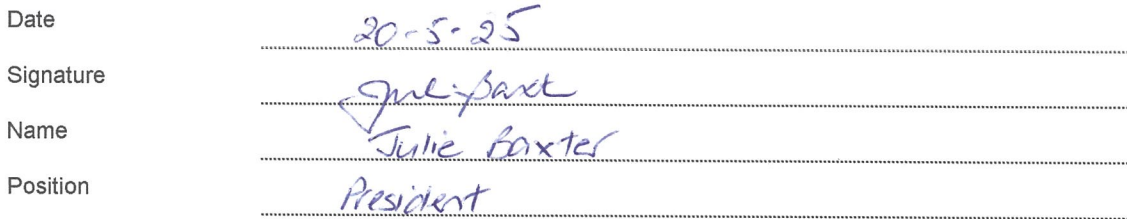 Date 20-5-25
Signature
Name Julie Baxter
Position President